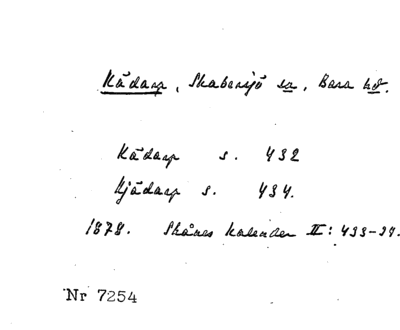 Kådarp, Skabersjö sn, Bara hd.
Kådarp s. 432
Kjådarp s. 434.
1878. Skånes kalender II: 433-34.
Nr 7254